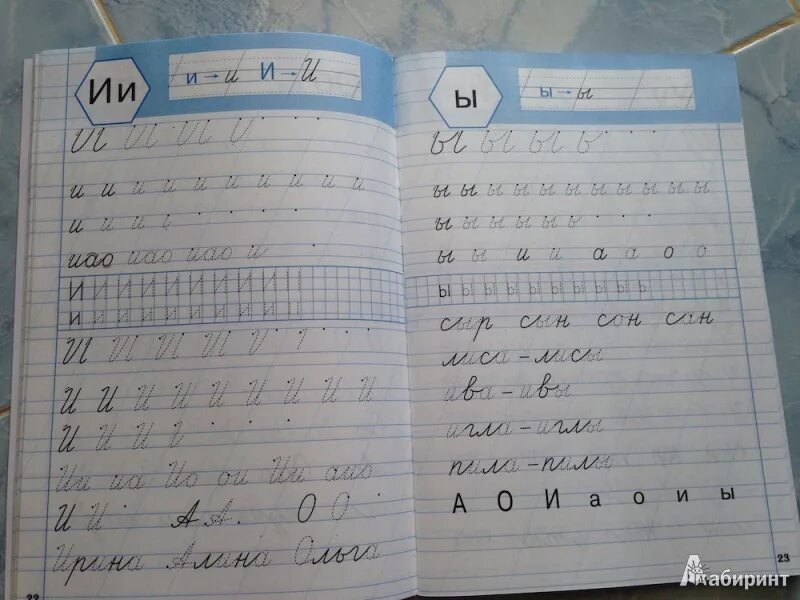 Ии и → и И → И
И И И И
и и и и и и и и и и
и и и
иао иао иао и
И И И И И И И И И
и и и и и и и и и
И И И И
И И И И И И И И И
И И И И
Ии иа Ио ои Ии аио
И И А А О О
Ирина Алина Ольга
22
ы ы → ы
ы ы ы ы
ы ы ы ы ы ы ы ы ы ы ы
ы ы ы ы ы ы
ы ы и и а а о о
ы ы ы ы ы ы ы ы ы ы
сыр сын сон сан
лиса – лисы
ива – ивы
игла – иглы
пила – пилы
А О И а о и ы
23
Лабиринт